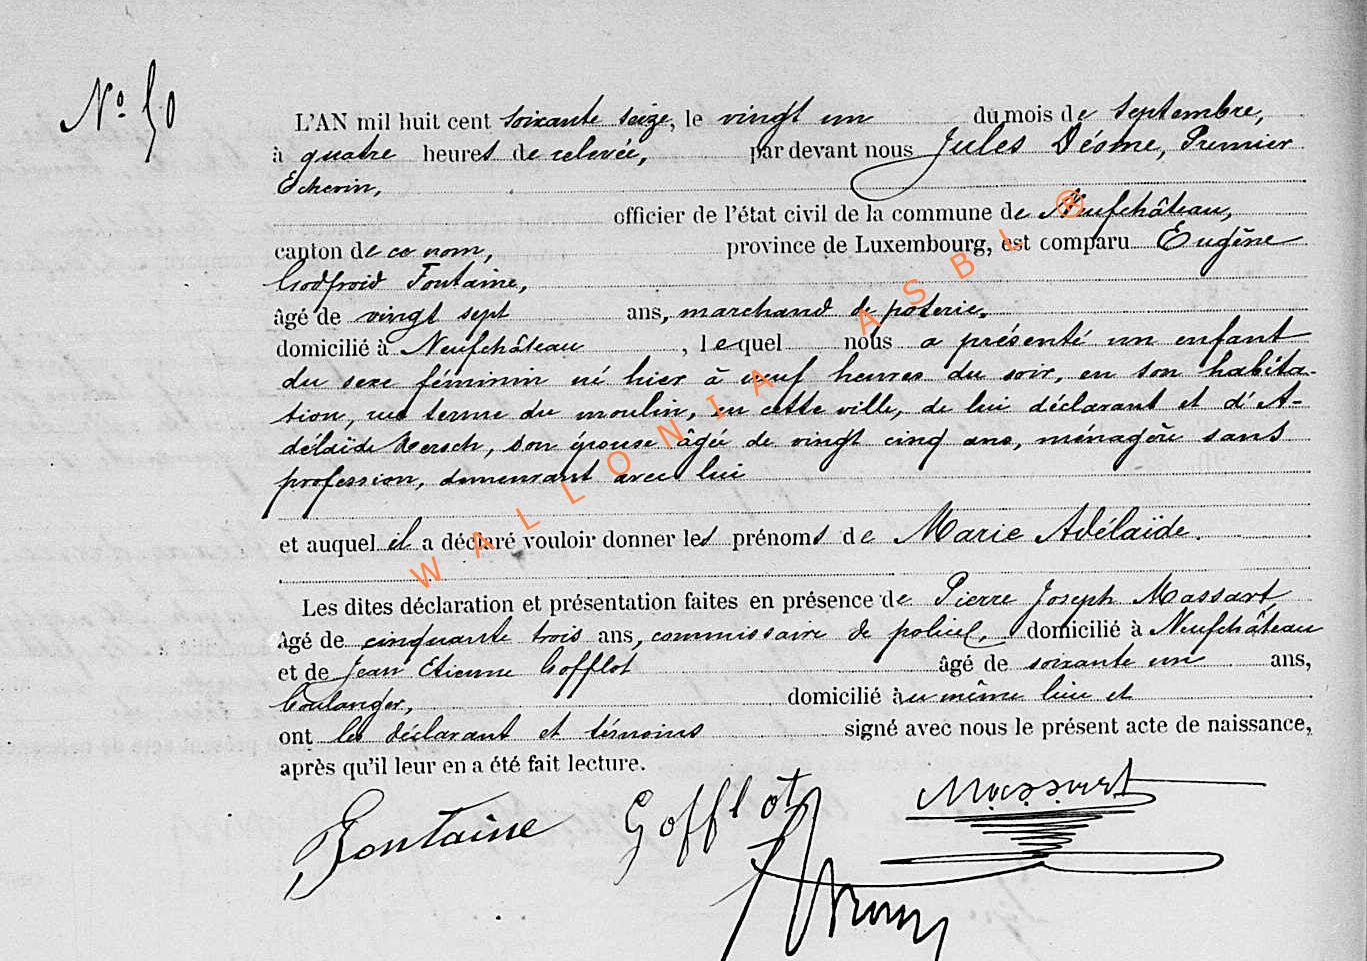 N° 50
L'AN mil huit cent soixante seize, le vingt un du mois de Septembre,
à quatre heures de relevée, par devant nous Jules Déome, Premier
Echevin,
officier de l'état civil de la commune de Neufchâteau,
canton de ce nom, province de Luxembourg, est comparu Eugène
Godfroid Fontaine,
âgé de vingt sept ans, marchand de poterie,
domicilié à Neufchâteau, lequel nous a présenté un enfant
du sexe féminin né hier à neuf heures du soir, en son habita-
tion, rue terme du moulin, en cette ville, de lui déclarant et d'A-
délaïde Bersch, son épouse âgée de vingt cinq ans, ménagère sans
profession, demeurant avec lui
et auquel il a déclaré vouloir donner les prénoms de Marie Adélaïde.
Les dites déclaration et présentation faites en présence de Pierre Joseph Massart,
âgé de cinquante trois ans, commissaire de police, domicilié à Neufchâteau
et de Jean Etienne Gofflot âgé de soixante un ans,
boulanger, domicilié au même lieu et
ont les déclarant et témoins signé avec nous le présent acte de naissance,
après qu'il leur en a été fait lecture.
Fontaine Gofflot Massart
WALLONIA ASBL ®